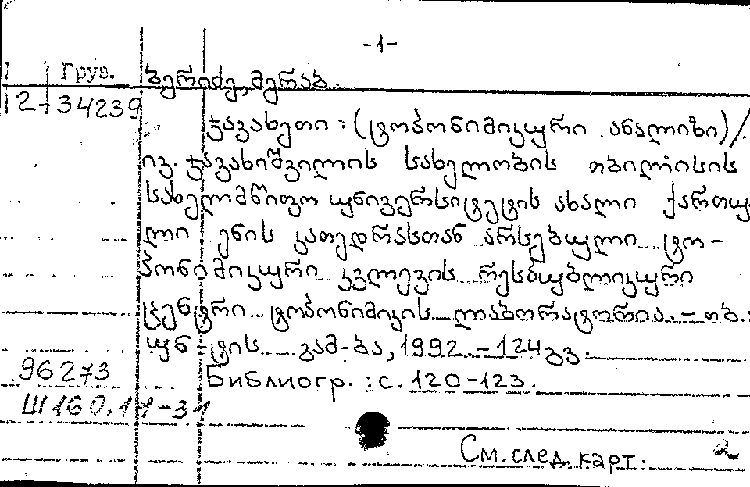 -1-
Груз. ბერიძე, მერაბ
12-34239
ჯავახეთი : (ტოპონიმიკური ანალიზი) /
ივ. ჯავახიშვილის სახელობის თბილისის
სახელმწიფო უნივერსიტეტის ახალი ქართუ
ლი ენის კათედრასთან არსებული ტო-
პონიმიკური კვლევის რესპუბლიკური
ცენტრი ტოპონიმიკის ლაბორატორია. - თბ.:
უნ-ტის გამ-ბა, 1992. - 124 გვ.
96273 Библиогр.: с. 120-123.
Ш160.11-31
См. след. карт.